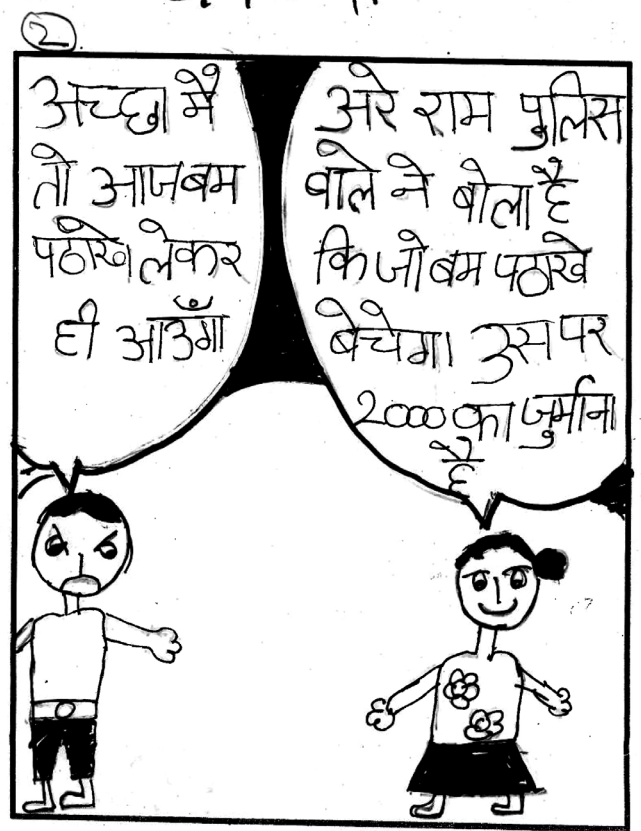 2
अच्छा मै
तो आजबम
पठाखे लेकर
ही आउँगा
अरे राम पुलिस
वाले ने बोला है
कि जो बम पठाखे
बेचेगा उस पर
2000 का जुर्माना
है